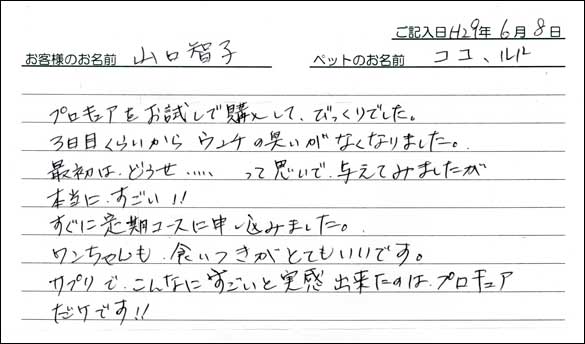 ご記入日 H29年 6月 8日
お客様のお名前 山口智子 ペットのお名前 ココ、ルル
プロキュアをお試しで購入して、びっくりでした。
3日目くらいから ウンチの臭いがなくなりました。
最初は、どうせ‥‥‥ って思いで、与えてみましたが
本当に、すごい!!
すぐに定期コースに申し込みました。
ワンちゃんも、食いつきがとてもいいです。
サプリで、こんなにすごいと実感出来たのは、プロキュア
だケです!!